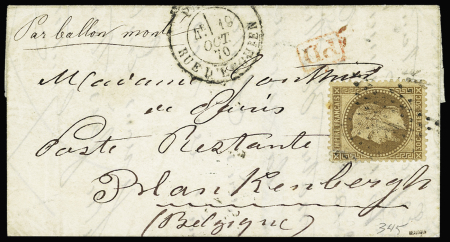 Par ballon monté
16
OCT
70
RUE D'ENGHIEN
PD
Madame
de Paris
Poste Restante
Blankenbergh
(Belgique)
345